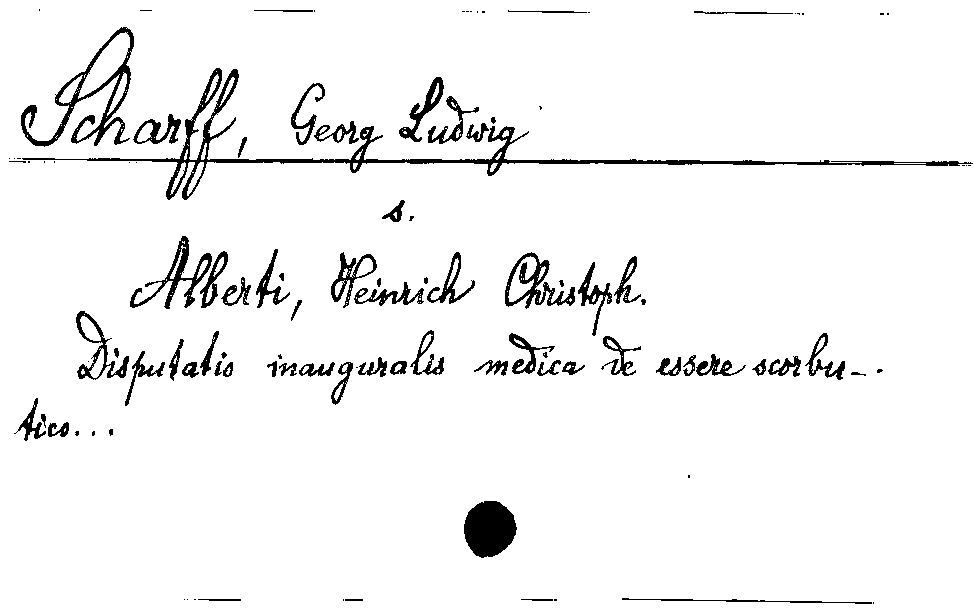 Scharff, Georg Ludwig
s.
Alberti, Heinrich Christoph.
Disputatio inauguralis medica de essere scorbu-.
tico...